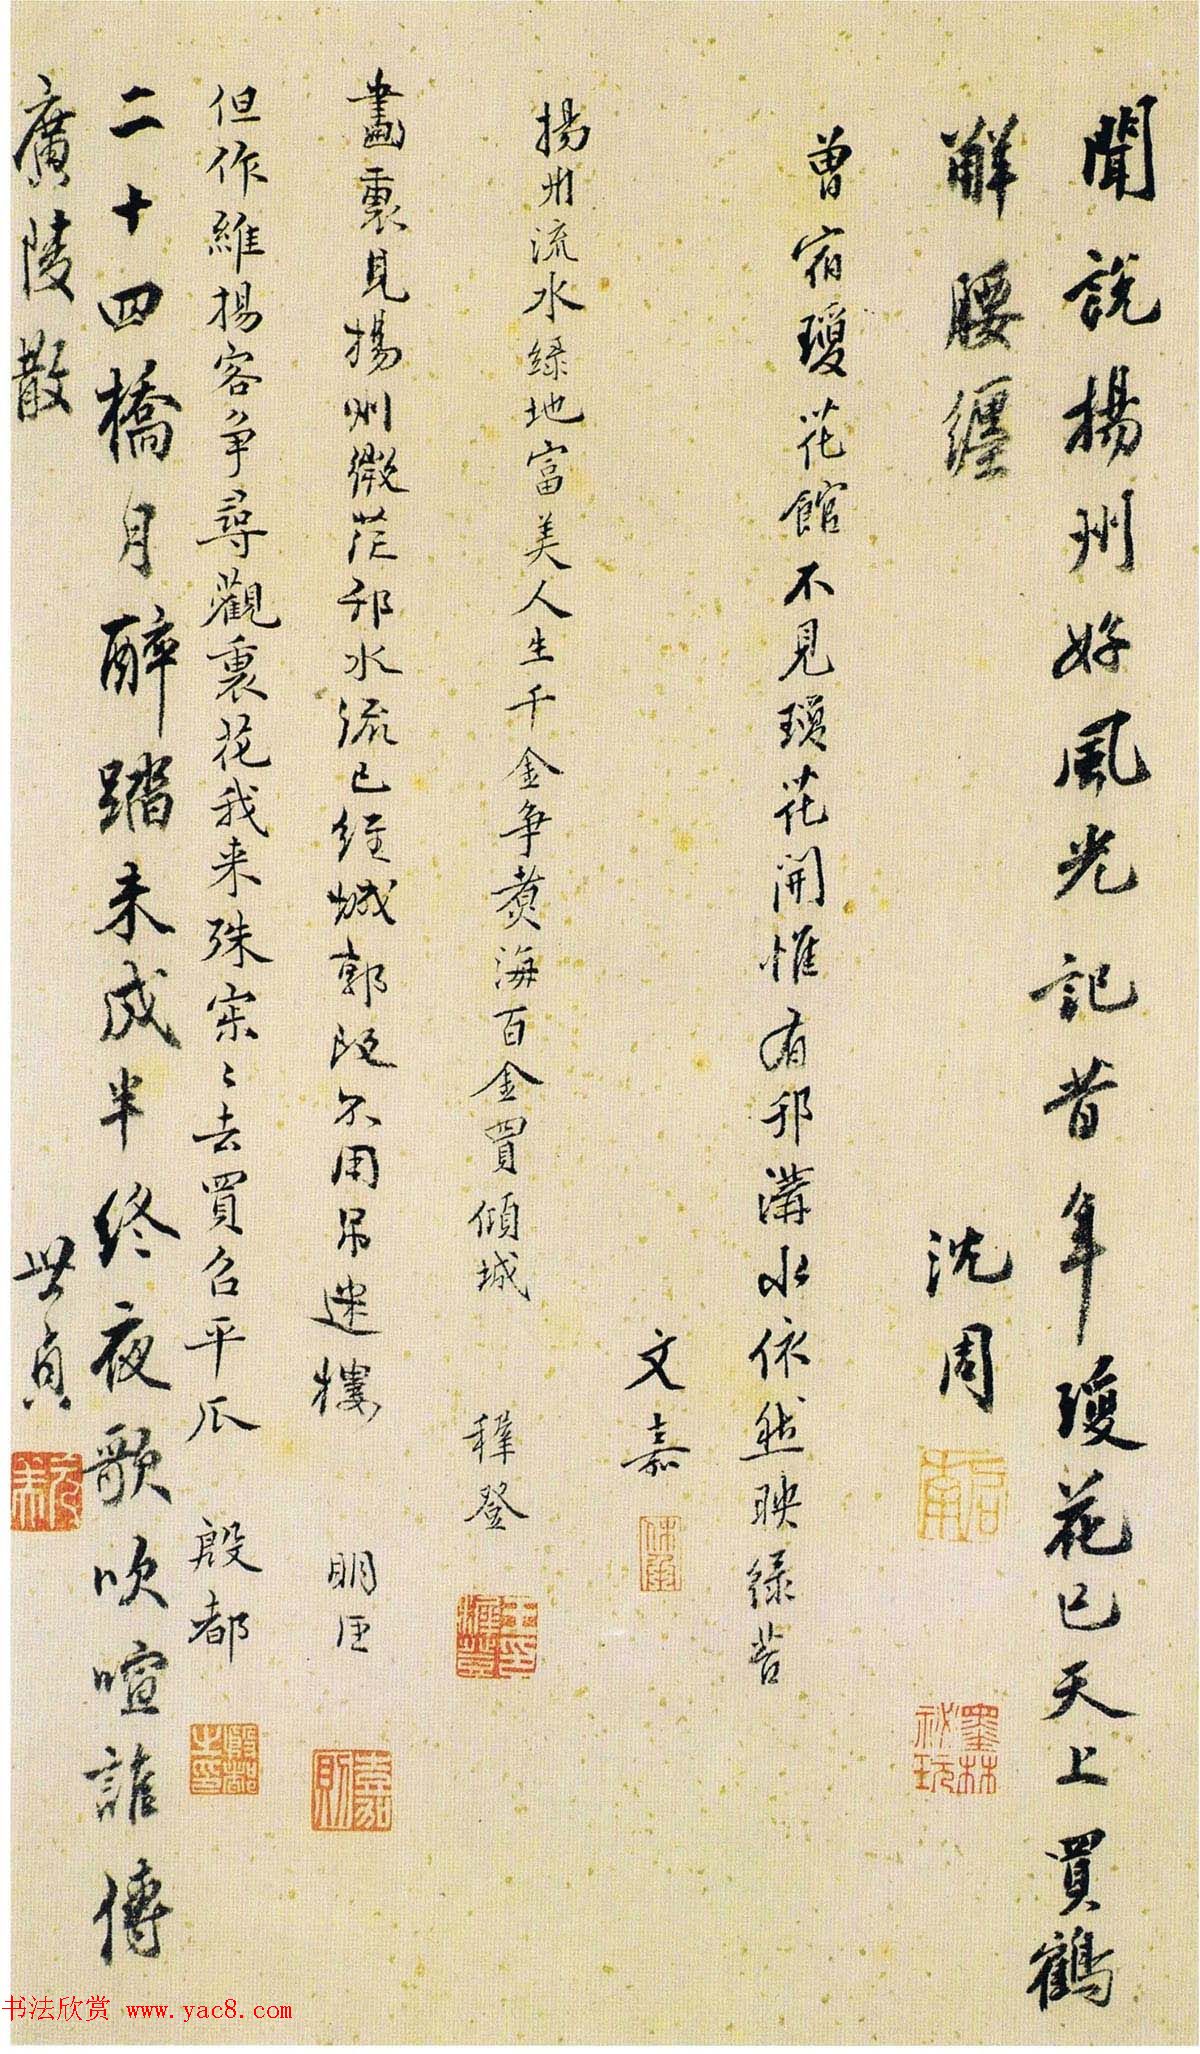 聞說揚州好風光記昔年瓊花已天上買鶴
解腰纏
沈周
啟南
墨林祕玩
曾宿瓊花館不見瓊花開惟有邗溝水依然映綠苔
文嘉
休承
揚州流水綠地富美人生千金爭煑海百金買傾城
穉登
王穉登印
畫裏見揚州微茫邗水流已經城郭改不用吊迷樓
明臣
嘉則
但作維揚客爭尋觀裏花我來殊寂〻去買召平瓜
殷都
殷都之印
二十四橋月醉踏未成半終夜歌吹喧誰傳
廣陵散
世貞
元美
书法欣赏 www.yac8.com